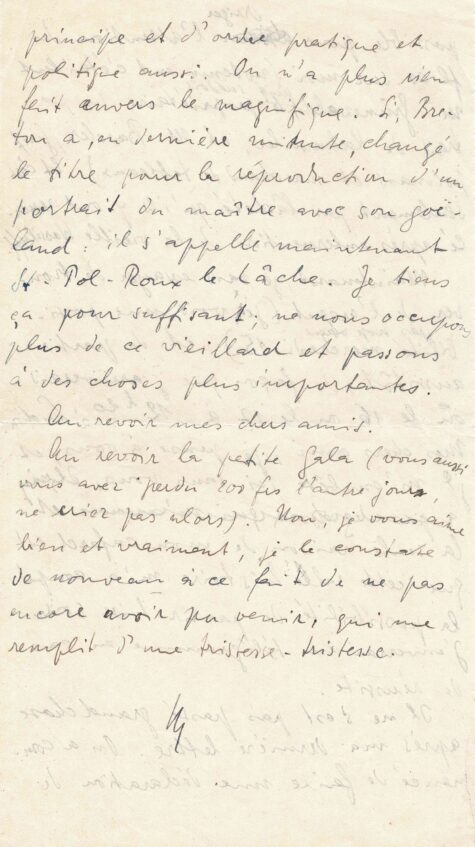 principe et d'ordre pratique et
politique aussi. On n'a plus rien
fait anvers le magnifique. Si Bre-
ton a, en dernière minute, changé
le titre pour la réproduction d'un
portrait du maître avec son goë-
land: il s'appelle maintenant
St-Pol-Roux le Lâche. Je tiens
ça pour suffisant; ne nous occupons
plus de ce vieillard et passons
à des choses plus importantes.
Au revoir mes chers amis.
Au revoir la petite Gala (vous aussi
vous avez perdu 200 frs l'autre jour,
ne criez pas alors). Non, je vous aime
bien et vraiment, je le constate
de nouveau à ce fait de ne pas
encore avoir pu venir, qui me
remplit d'une tristesse-tristesse.